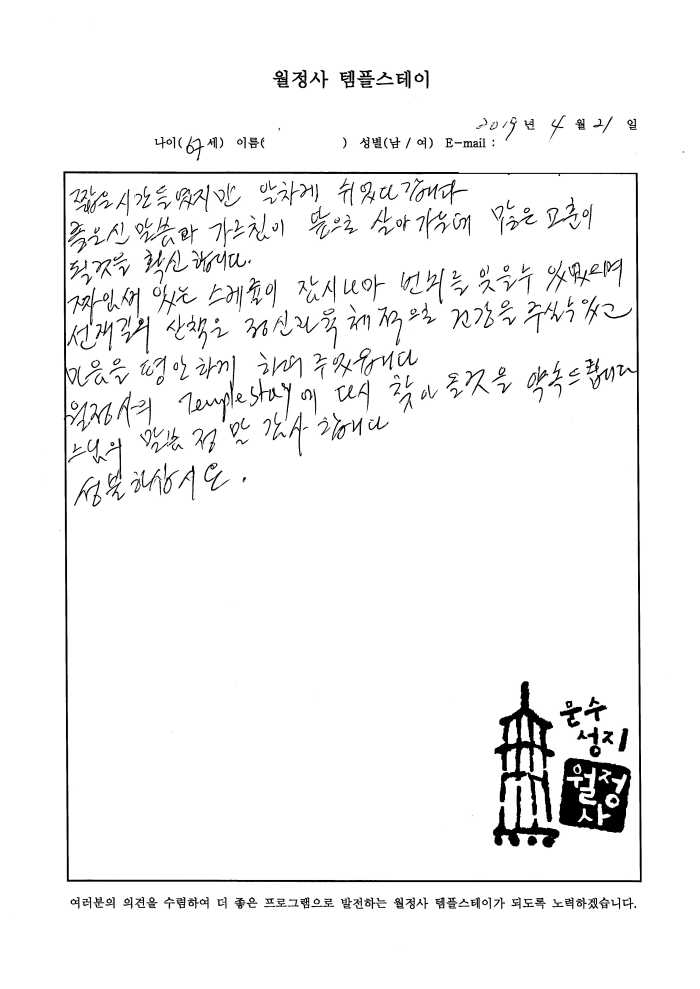 월정사 템플스테이
2019년 4월 21일
나이(67세) 이름( ) 성별(남 / 여) E-mail :
짧은 시간들였지만 알차게 쉬었다 갑니다
좋으신 말씀과 가르침이 앞으로 살아가는데 많은 교훈이
될것을 확신합니다.
짜임새 있는 스케쥴이 잠시나마 번뇌를 잊을수 있었으며
선재길의 산책은 정신과 육체적으로 건강을 주실수있고
마음을 평안하게 하여 주었읍니다
월정사의 Temple Stay에 다시 찾아 올것을 약속드립니다
스님의 말씀 정말 감사합니다
성불하십시요.
문수
성지
월정
사
여러분의 의견을 수렴하여 더 좋은 프로그램으로 발전하는 월정사 템플스테이가 되도록 노력하겠습니다.